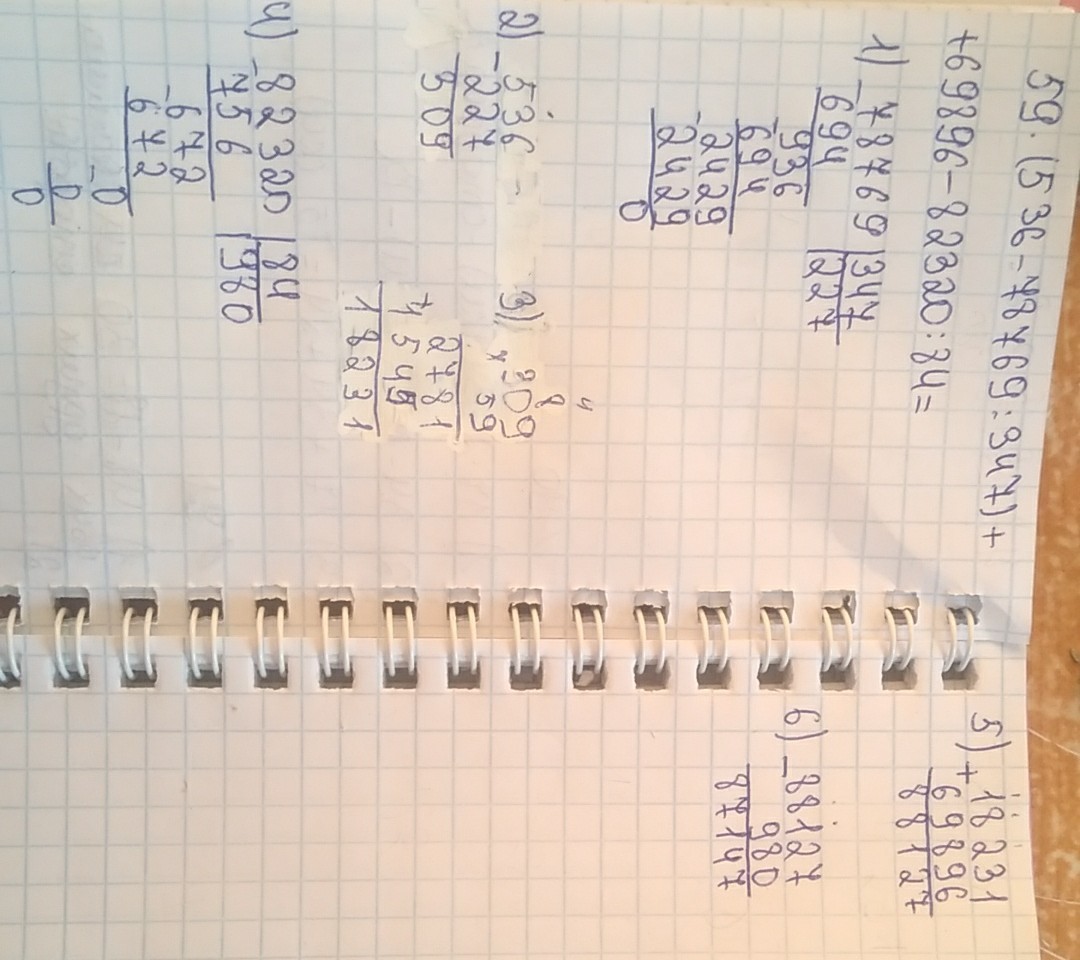 59·(536-78769:347)+
+69896-82320:84=
1) 78769|347
-694 227
936
-694
2429
-2429
0
2) 536
-227
309
3) 309
×59
2781
+1545
18231
4) 82320|84
-756 980
672
-672
0
-0
0
5) 18231
+69896
88127
6) 88127
-980
87147